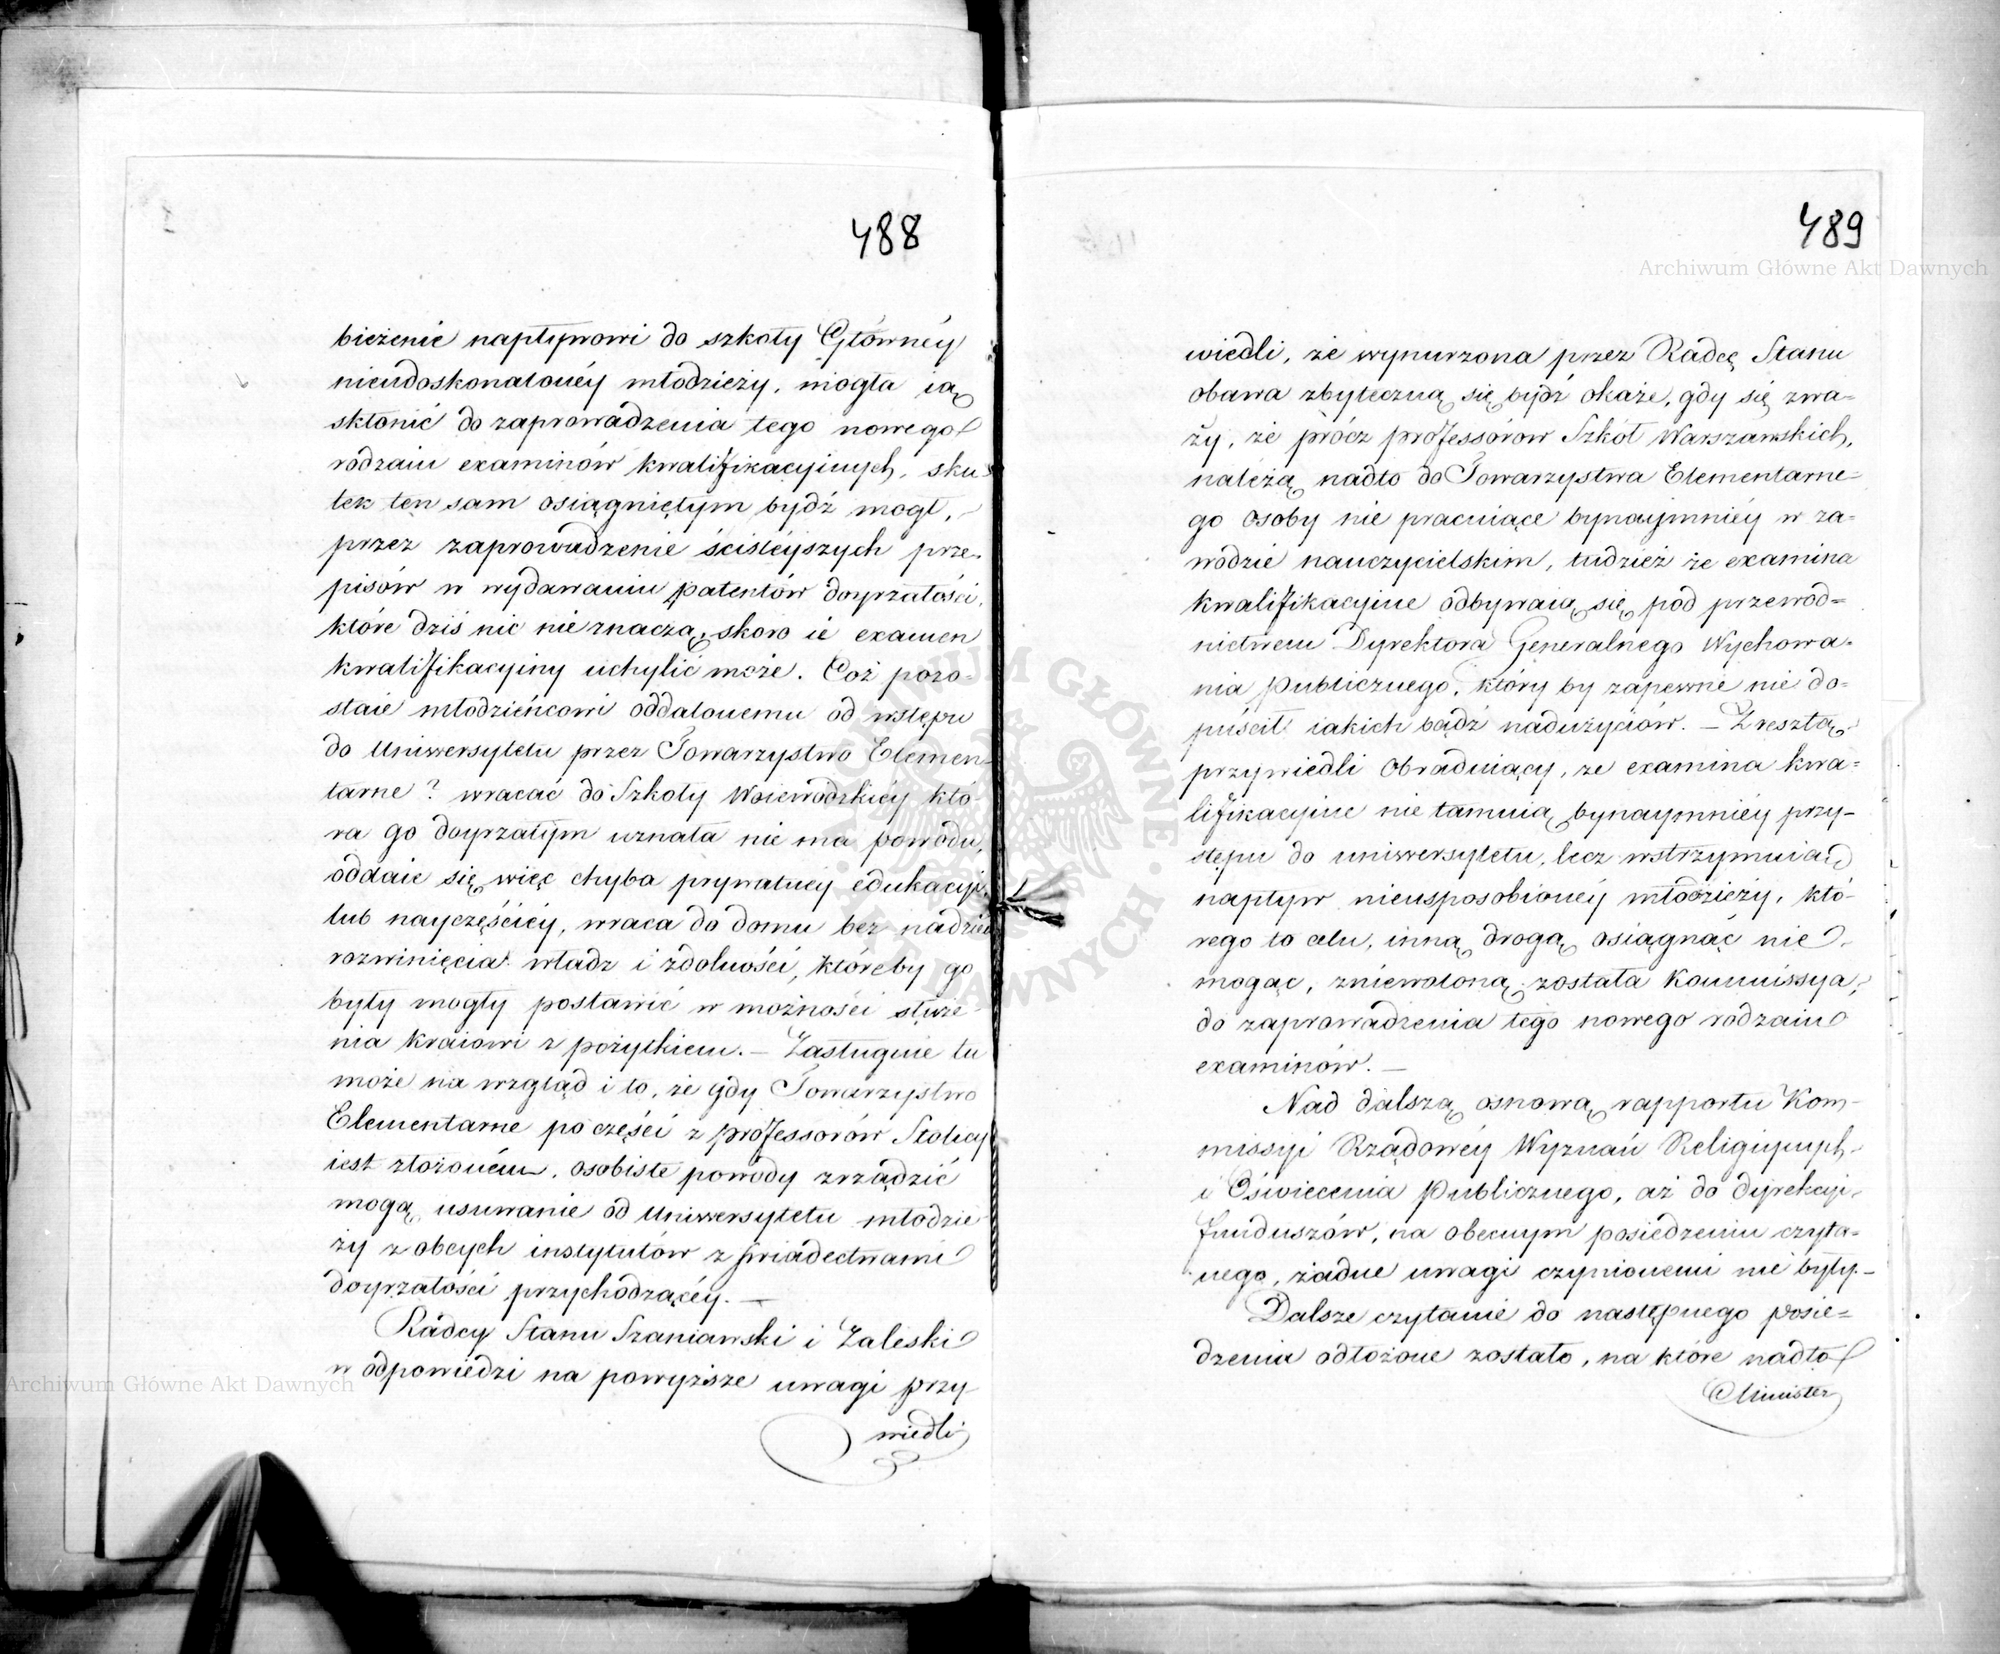 488
bieżenie napływowi do szkoły Głównéy
nieudoskonalonéy młodzieży, mogła ią
skłonić do zaprowadzenia tego nowego
rodzaiu examinów kwalifikacyinych, sku-
tek ten sam osiągniętym bydź mogł,
przez zaprowadzenie ściśleyszych prze-
pisów w wydawaniu patentów doyrzałości,
które dziś nic nie znaczą, skoro ie examen
kwalifikacyiny uchylić może. Coż pozo-
staie młodzieńcowi oddalonemu od wstępu
do Uniwersytetu przez Towarzystwo Elemen-
tarne? wracać do Szkoły Woiewódzkiéy któ-
ra go doyrzałym uznała nie ma powodu,
oddaie się więc chyba prywatney edukacyi,
lub nayczęściéy, wraca do domu bez nadziei
rozwinięcia władz i zdolności, któreby go
były mogły postawić w możności służe-
nia kraiowi z pożytkiem. — Zasługuie tu
może na wzgląd i to, że gdy Towarzystwo
Elementarne po części z professorów Stolicy
iest złożoném, osobiste powody zrządzić
mogą usuwanie od Uniwersytetu młodzie-
ży z obcych instytutów z świadectwami
doyrzałości przychodzącéy. —
Radcy Stanu Szaniawski i Zaleski
w odpowiedzi na powyższe uwagi przy-
wiedli
489
wiedli, że wynurzona przez Radcę Stanu
obawa zbyteczną się bydź okaże, gdy się zwa-
ży, że prócz professorow Szkół Warszawskich,
należą nadto do Towarzystwa Elementarne-
go osoby nie pracuiące bynaymniéy w za-
wodzie nauczycielskim, tudzież że examina
kwalifikacyine odbywaią się pod przewod-
nictwem Dyrektora Generalnego Wychowa-
nia Publicznego, który by zapewne nie do-
puścił iakich bądź nadużyciów. — Zresztą,
przywiedli Obraduiący, że examina kwa-
lifikacyine nie tamuią bynaymniéy przy-
stępu do uniwersytetu, lecz wstrzymuią
napływ nieusposobionéy młodzieży, któ-
rego to celu, inną drogą osiągnąć nie
mogąc, zniewoloną została Kommissya,
do zaprowadzenia tego nowego rodzaiu
examinów. —
Nad dalszą osnową rapportu Kom-
missyi Rządowéy Wyznań Religiynych
i Oświecenia Publicznego, aż do dyrekcyi
funduszów, na obecnym posiedzeniu czyta-
nego, żadne uwagi czynionemi nie były. —
Dalsze czytanie do następnego posie-
dzenia odłożone zostało, na które nadto
Minister
Archiwum Główne Akt Dawnych
Archiwum Główne Akt Dawnych
ARCHIWUM GŁÓWNE AKT DAWNYCH